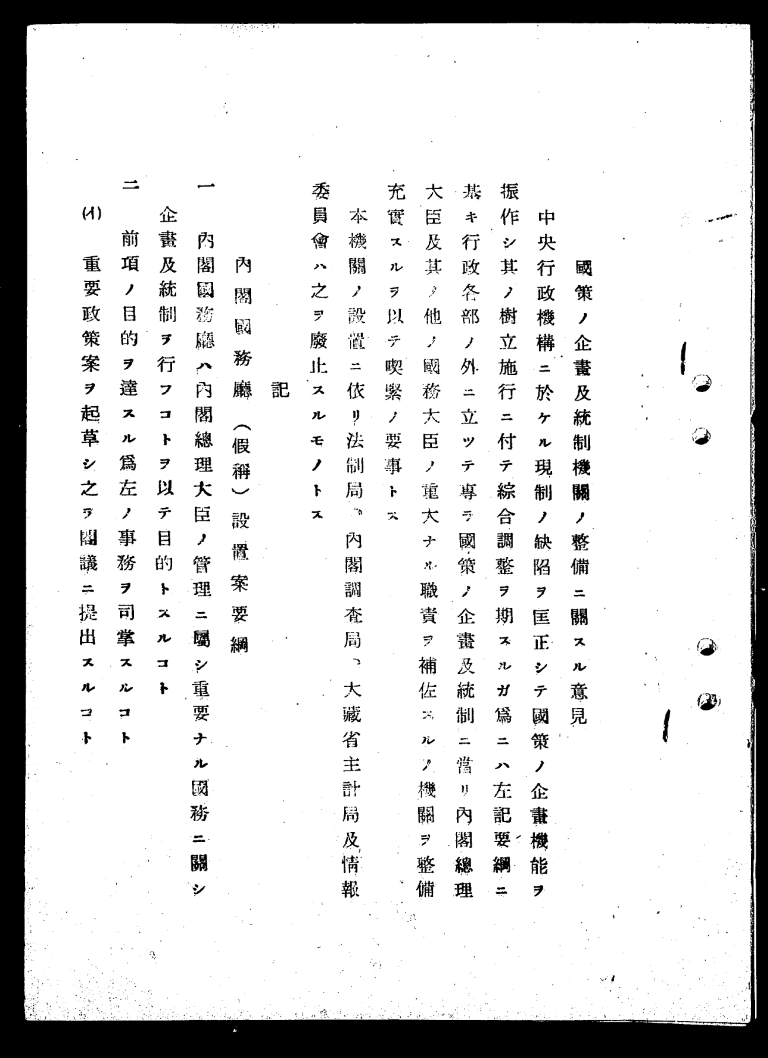 國策ノ企畫及統制機關ノ整備ニ關スル意見
中央行政機構ニ於ケル現制ノ缺陷ヲ匡正シテ國策ノ企畫機能ヲ
振作シ其ノ樹立施行ニ付テ綜合調整ヲ期スルガ爲ニハ左記要綱ニ
基キ行政各部ノ外ニ立ツテ專ラ國策ノ企畫及統制ニ當リ內閣總理
大臣及其ノ他ノ國務大臣ノ重大ナル職責ヲ補佐スルノ機關ヲ整備
充實スルヲ以テ喫緊ノ要事トス
本機關ノ設置ニ依リ法制局、內閣調査局、大藏省主計局及情報
委員會ハ之ヲ廢止スルモノトス
記
內閣國務廳(假稱)設置案要綱
一 內閣國務廳ハ內閣總理大臣ノ管理ニ屬シ重要ナル國務ニ關シ
企畫及統制ヲ行フコトヲ以テ目的トスルコト
二 前項ノ目的ヲ達スル爲左ノ事務ヲ司掌スルコト
(イ) 重要政策案ヲ起草シ之ヲ閣議ニ提出スルコト